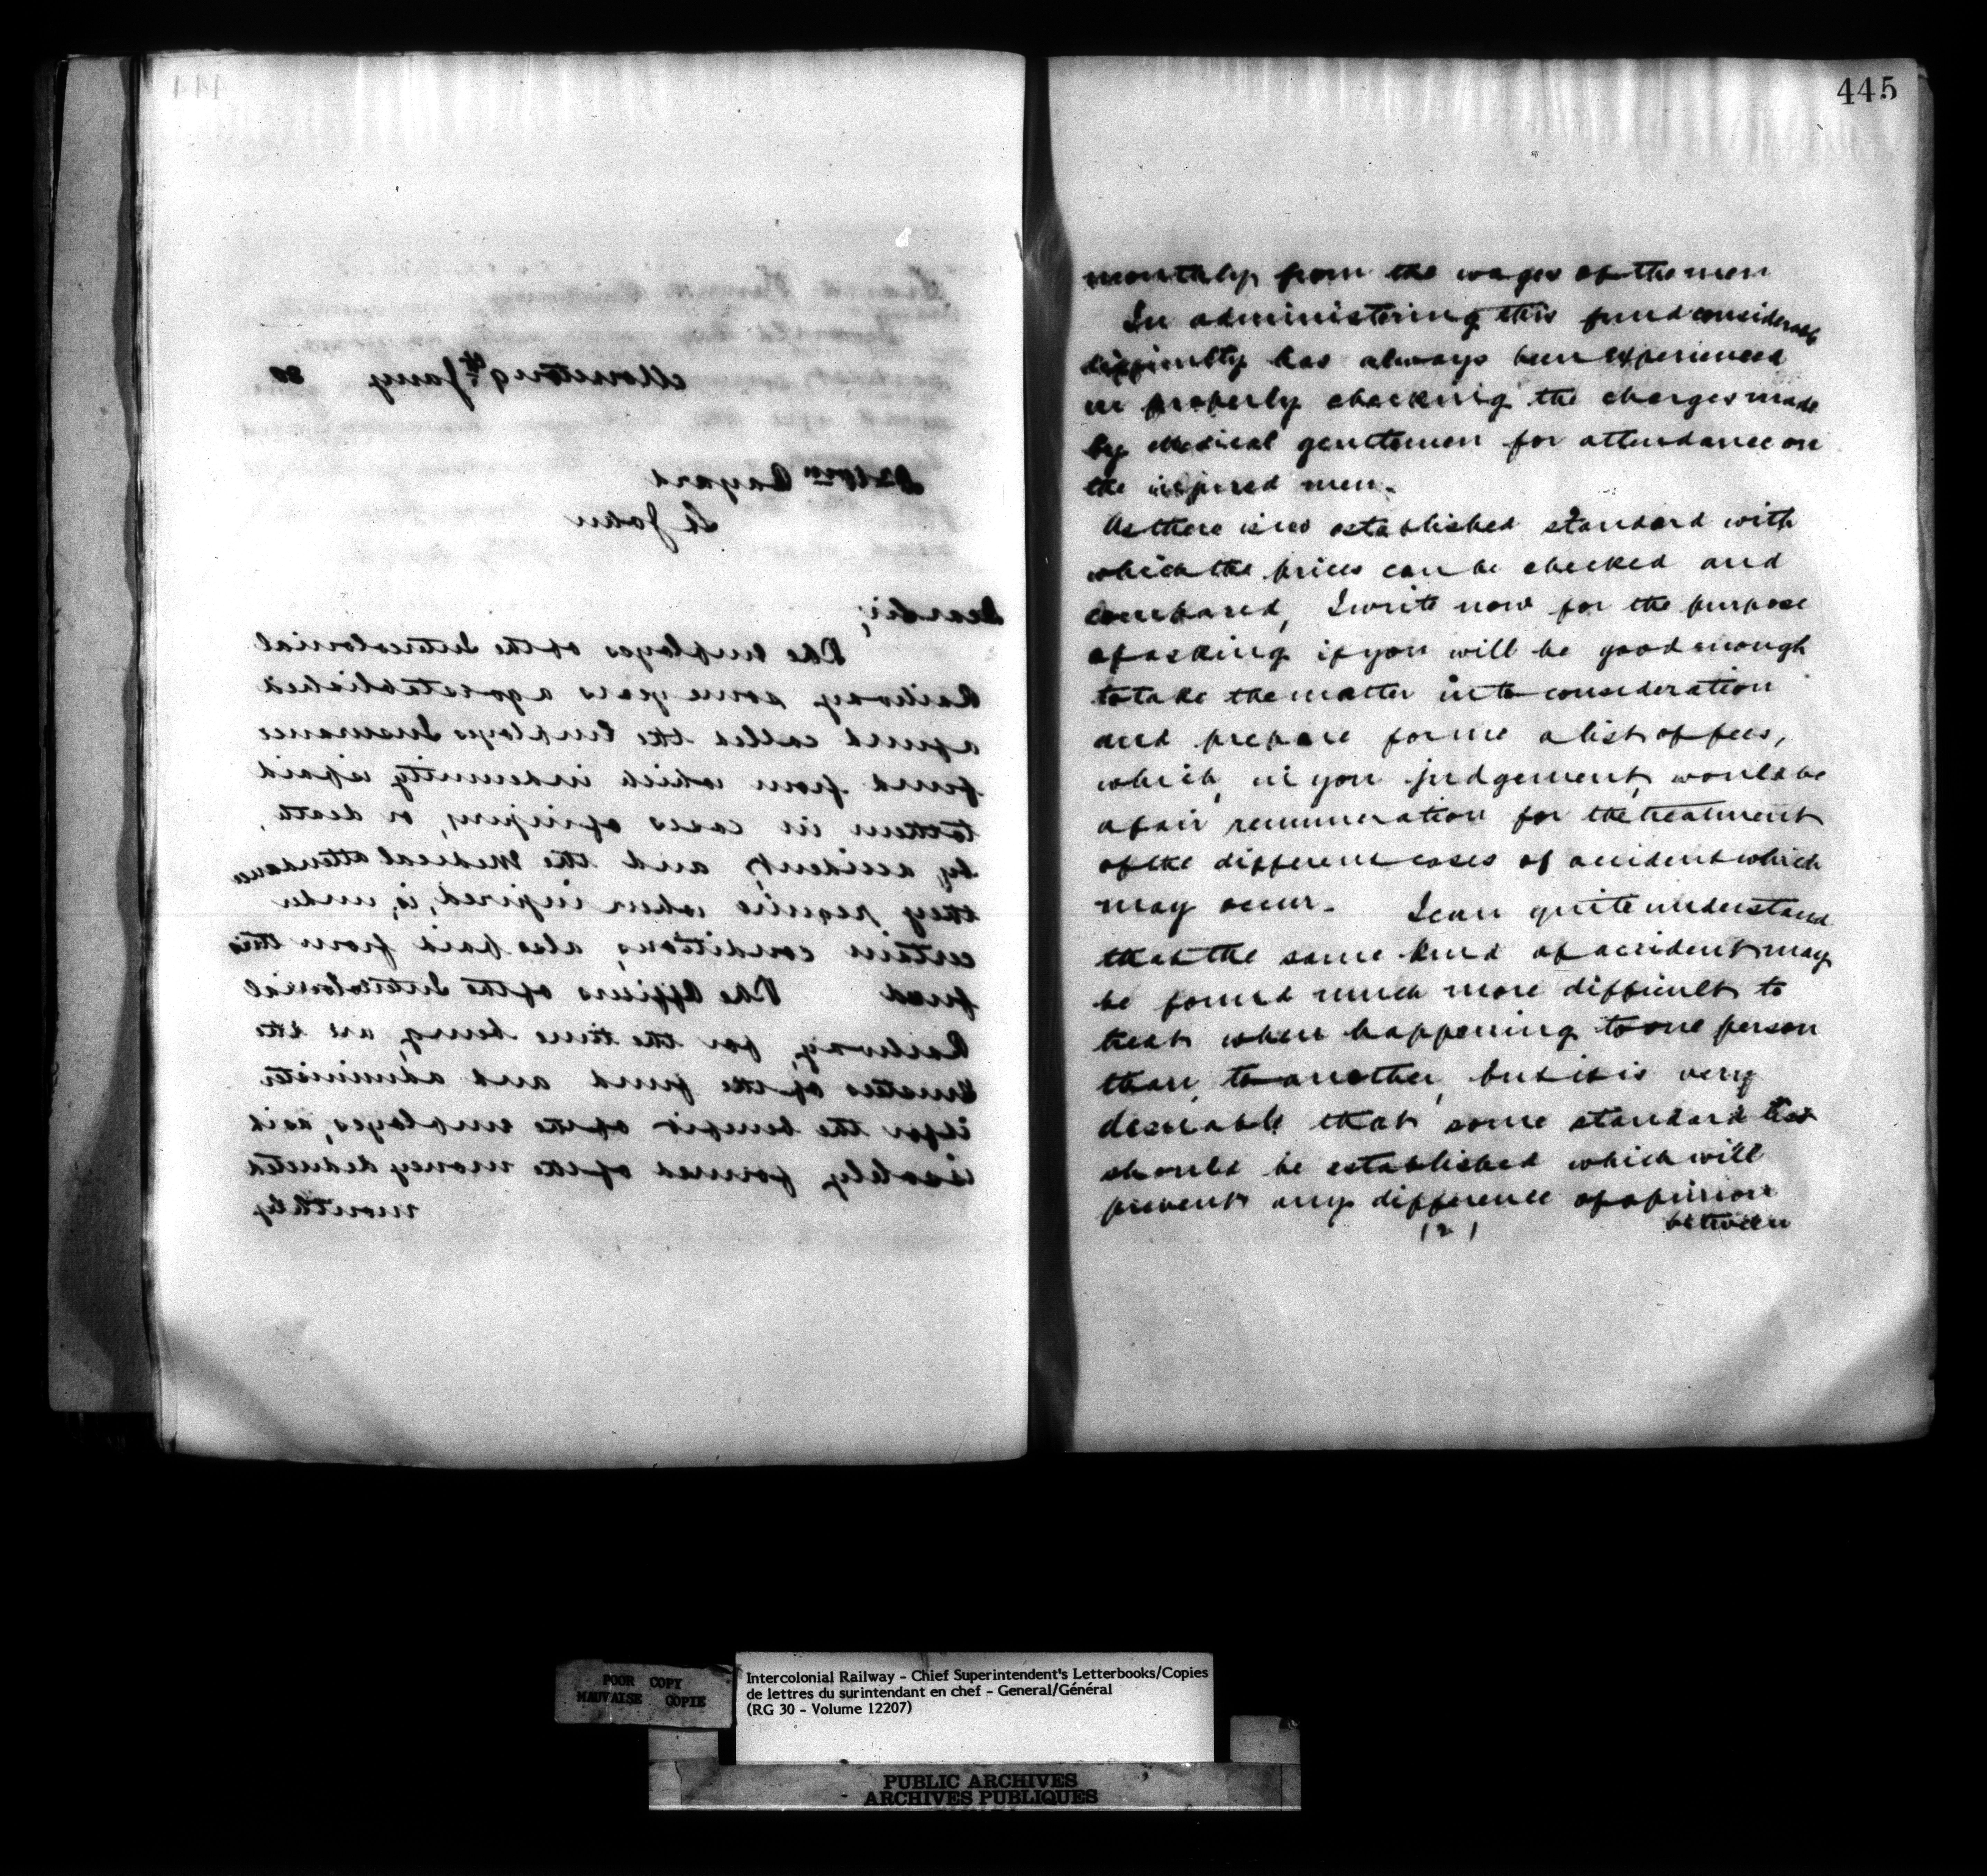 444
Moncton 9th Jany 80
Dr Wm Bayard
St John
Dear Sir,
The employes of the Intercolonial
Railway some years ago established
a fund called the Employes Insurance
fund from which indemnity is paid
to them in cases of injury, or death,
by accident, and the Medical attendance
they require when injured, is, under
certain conditions, also paid from this
fund The Officers of the Intercolonial
Railway, for the time being, are the
trustees of the fund and administer
it for the benefit of the employes, as it
is solely formed of the money deducted
monthly
445
monthly from the wages of the men
In administering this fund considerable
difficulty has always been experienced
in properly checking the charges made
by Medical gentlemen for attendance on
the injured men.
As there is no established standard with
which the prices can be checked and
compared, I write now for the purpose
of asking if you will be good enough
to take the matter into consideration
and prepare for me a list of fees,
which, in you judgement, would be
a fair remuneration for the treatment
of the different cases of accident which
may occur. I can quite understand
that the same kind of accident may
be found much more difficult to
treat when happening to one person
than, to another, but it is very
desirable that some standard
should be established which will
prevent any difference of opinion
between
(2)
POOR COPY
MAUVAISE COPIE
Intercolonial Railway - Chief Superintendent's Letterbooks/Copies
de lettres du surintendant en chef - General/Général
(RG 30 - Volume 12207)
PUBLIC ARCHIVES
ARCHIVES PUBLIQUES